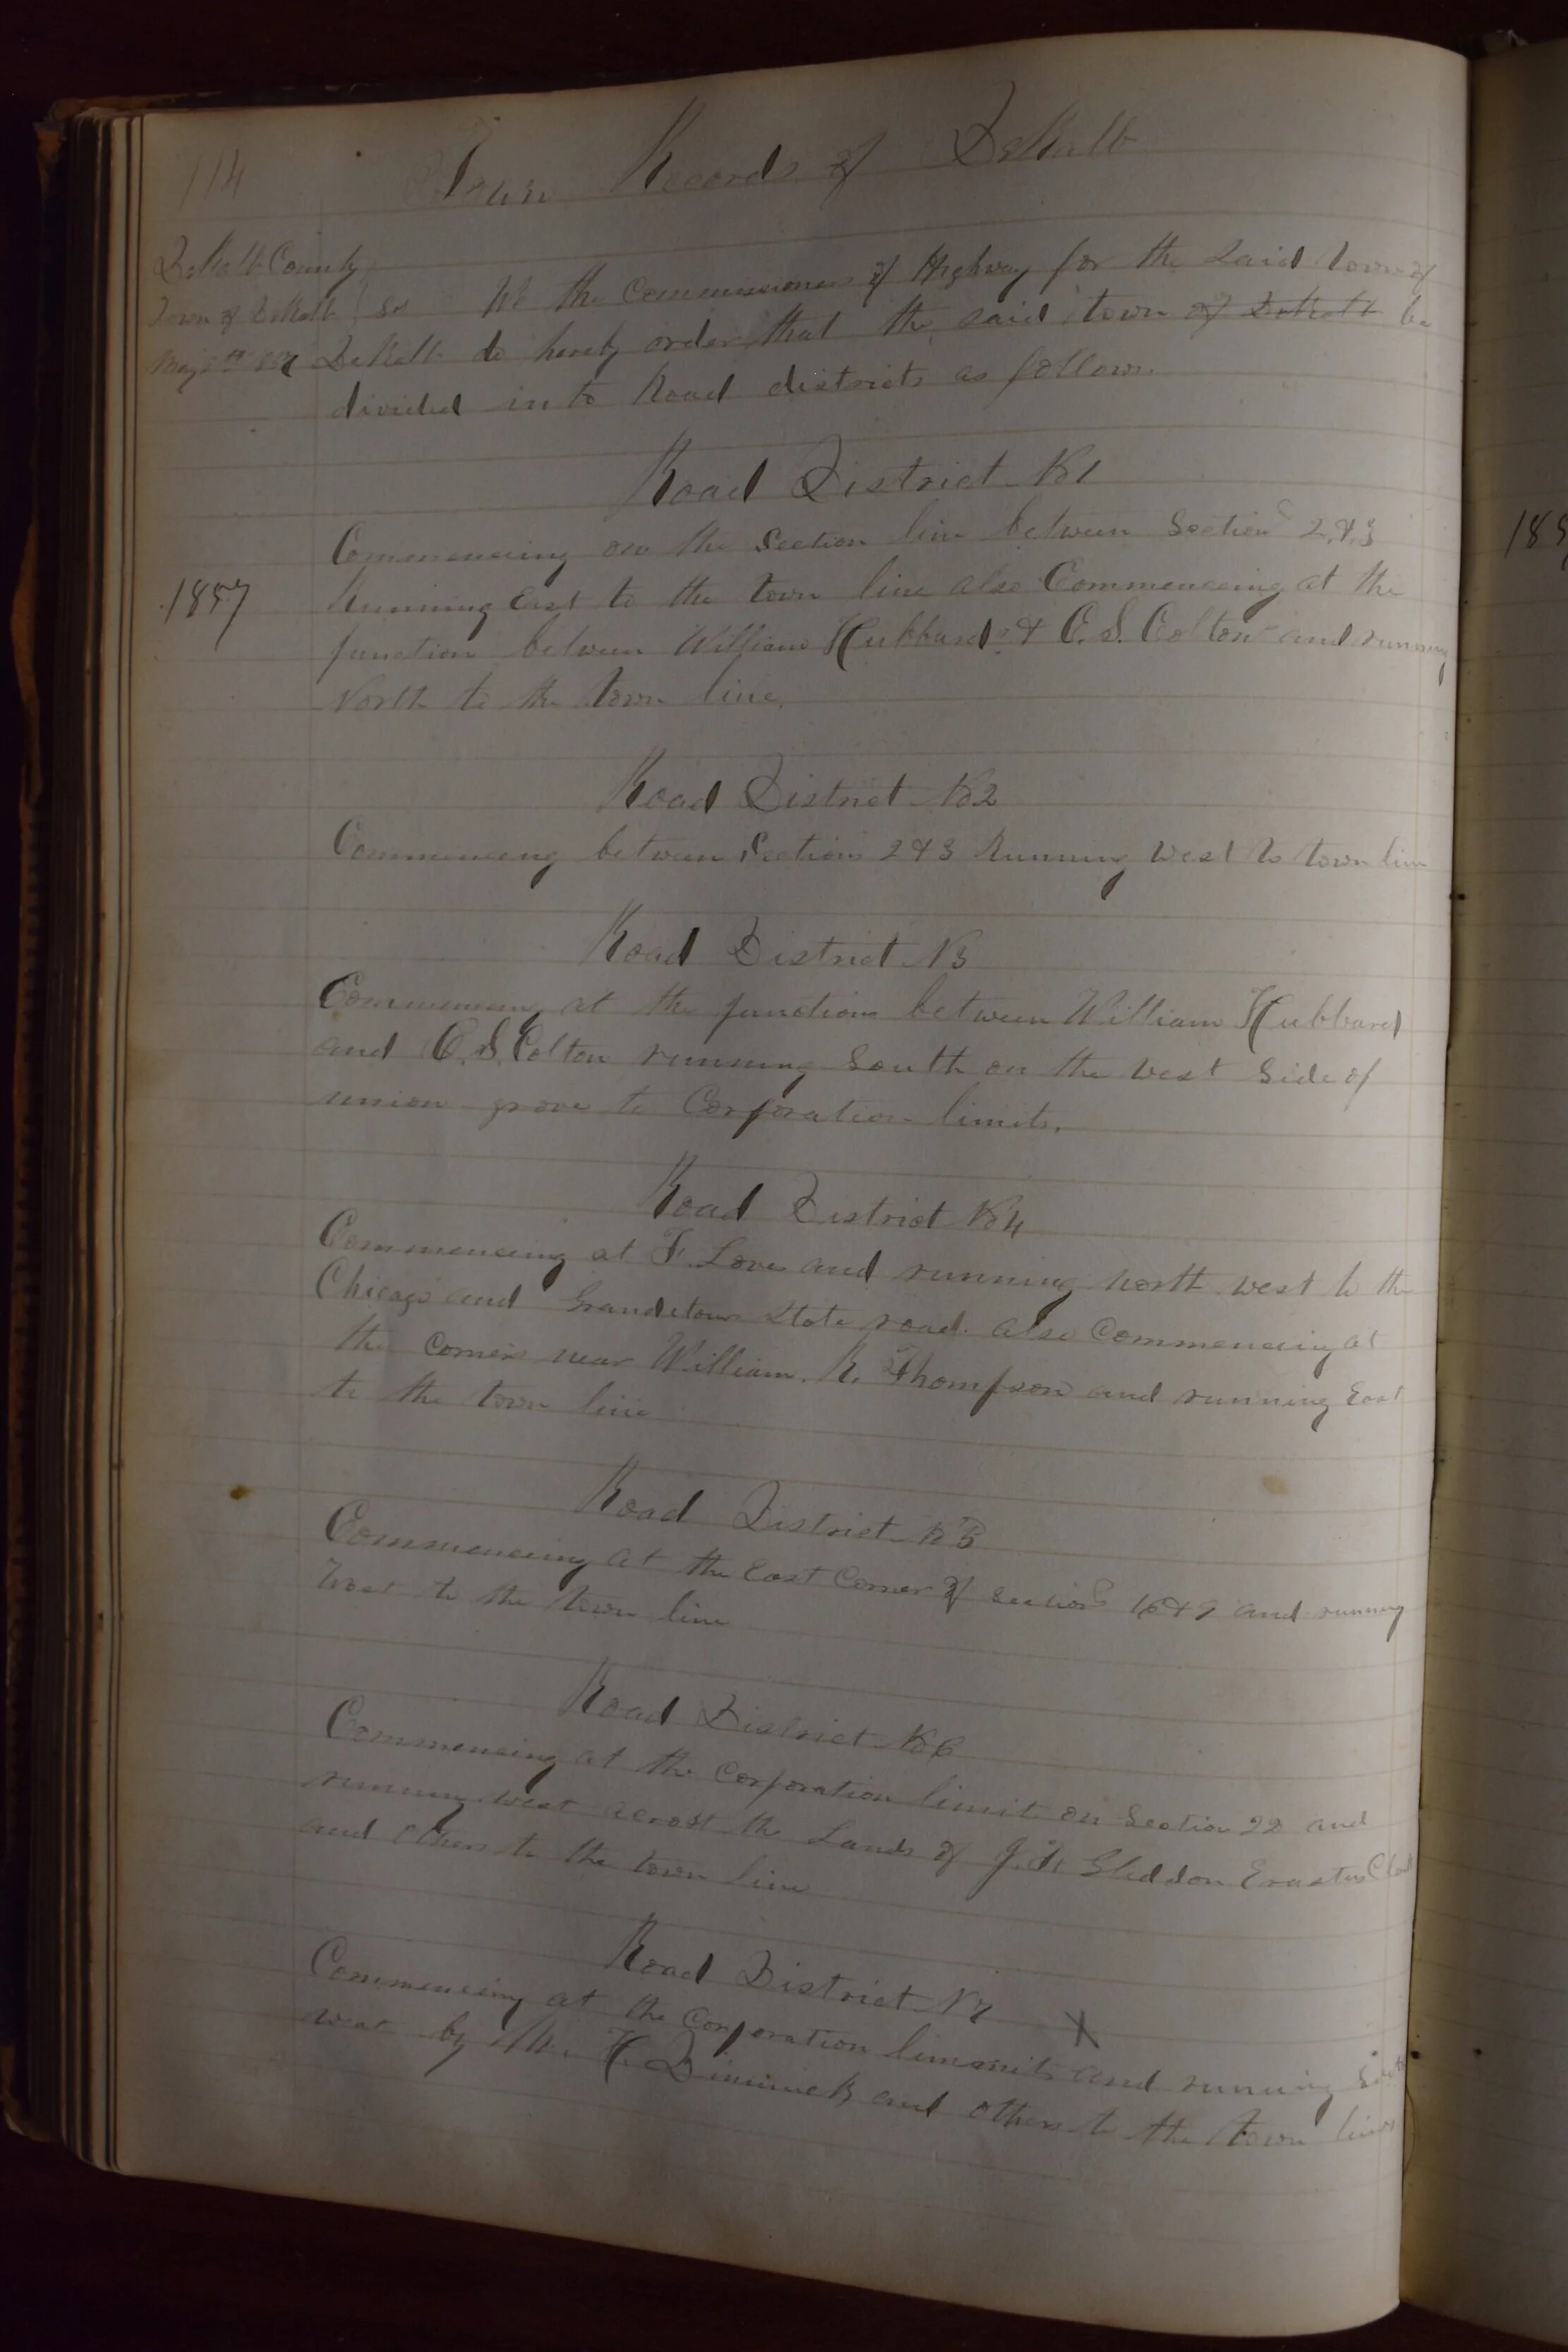 114
Town Records of DeKalb
DeKalb County
Town of DeKalb } SS We the Commissioners of Highway for the Said town of
May DeKalb do hereby order that the said town of DeKalb be
divided in to Road districts as follows.
Road District No 1
Commencing on the Section line between Sections 2 & 3
1887
Running East to the town line also Commencing at the
junction between William Hubbards & C. S. Colton and running
North to the town line.
Road District No 2
Commenceng between Sections 2 & 3 Running West to town line
Road District N 3
Commencing at the junction between William Hubbard
and C. S. Colton running South on the West Side of
union grove to Corporation limits.
Road District No 4
Commencing at F. Loves and running north west to the
Chicago and Grandetour State road. also Commencing at
the corners near William. R. Thompson and running East
to the town line
Road District No 5
Commencing at the East Corner of sections 16 & 9 and running
West to the town line
Road District No 6
Commencing at the Corporation limit on Section 22 and
running west acrost the Lands of Gleddon Erastus
and others to the town line
Road District N 7 X
Commencing at the Corporation limmits and running
west by H. Dimmick and others to the town line
185